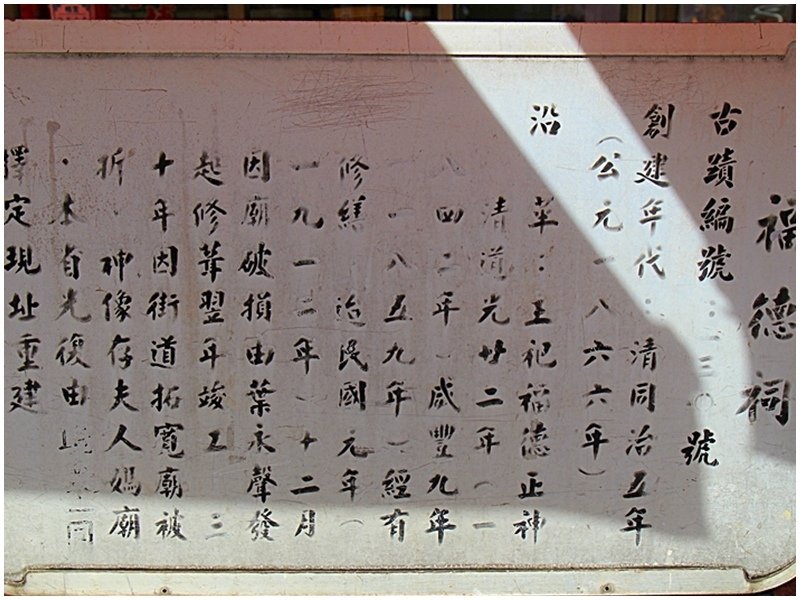 福德祠
古蹟編號：一三〇號
創建年代：清同治五年
（公元一八六六年）
沿革：主祀福德正神
清道光廿二年（一
八四二年）咸豐九年
（一八五九年）經有
修繕 迨民國元年（
一九一二年）十二月
因廟破損由葉永聲發
起修葺翌年竣工 三
十年因街道拓寬廟被
折，神像存夫人媽廟
，本省光復由
擇定現址重建